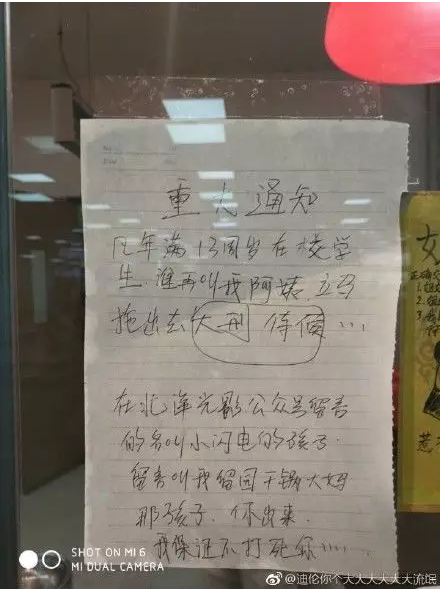 重大通知
凡年满13周岁在校学
生,谁再叫我阿姨,立马
拖出去大刑侍候…
在北洋光影公众号留言
的名叫小闪电的孩子.
留言叫我留园干锅大妈
那孩子.你出来.
我保证不打死你……
女
惹
SHOT ON MI 6
MI DUAL CAMERA
@迪伦你个大大大大大大流氓